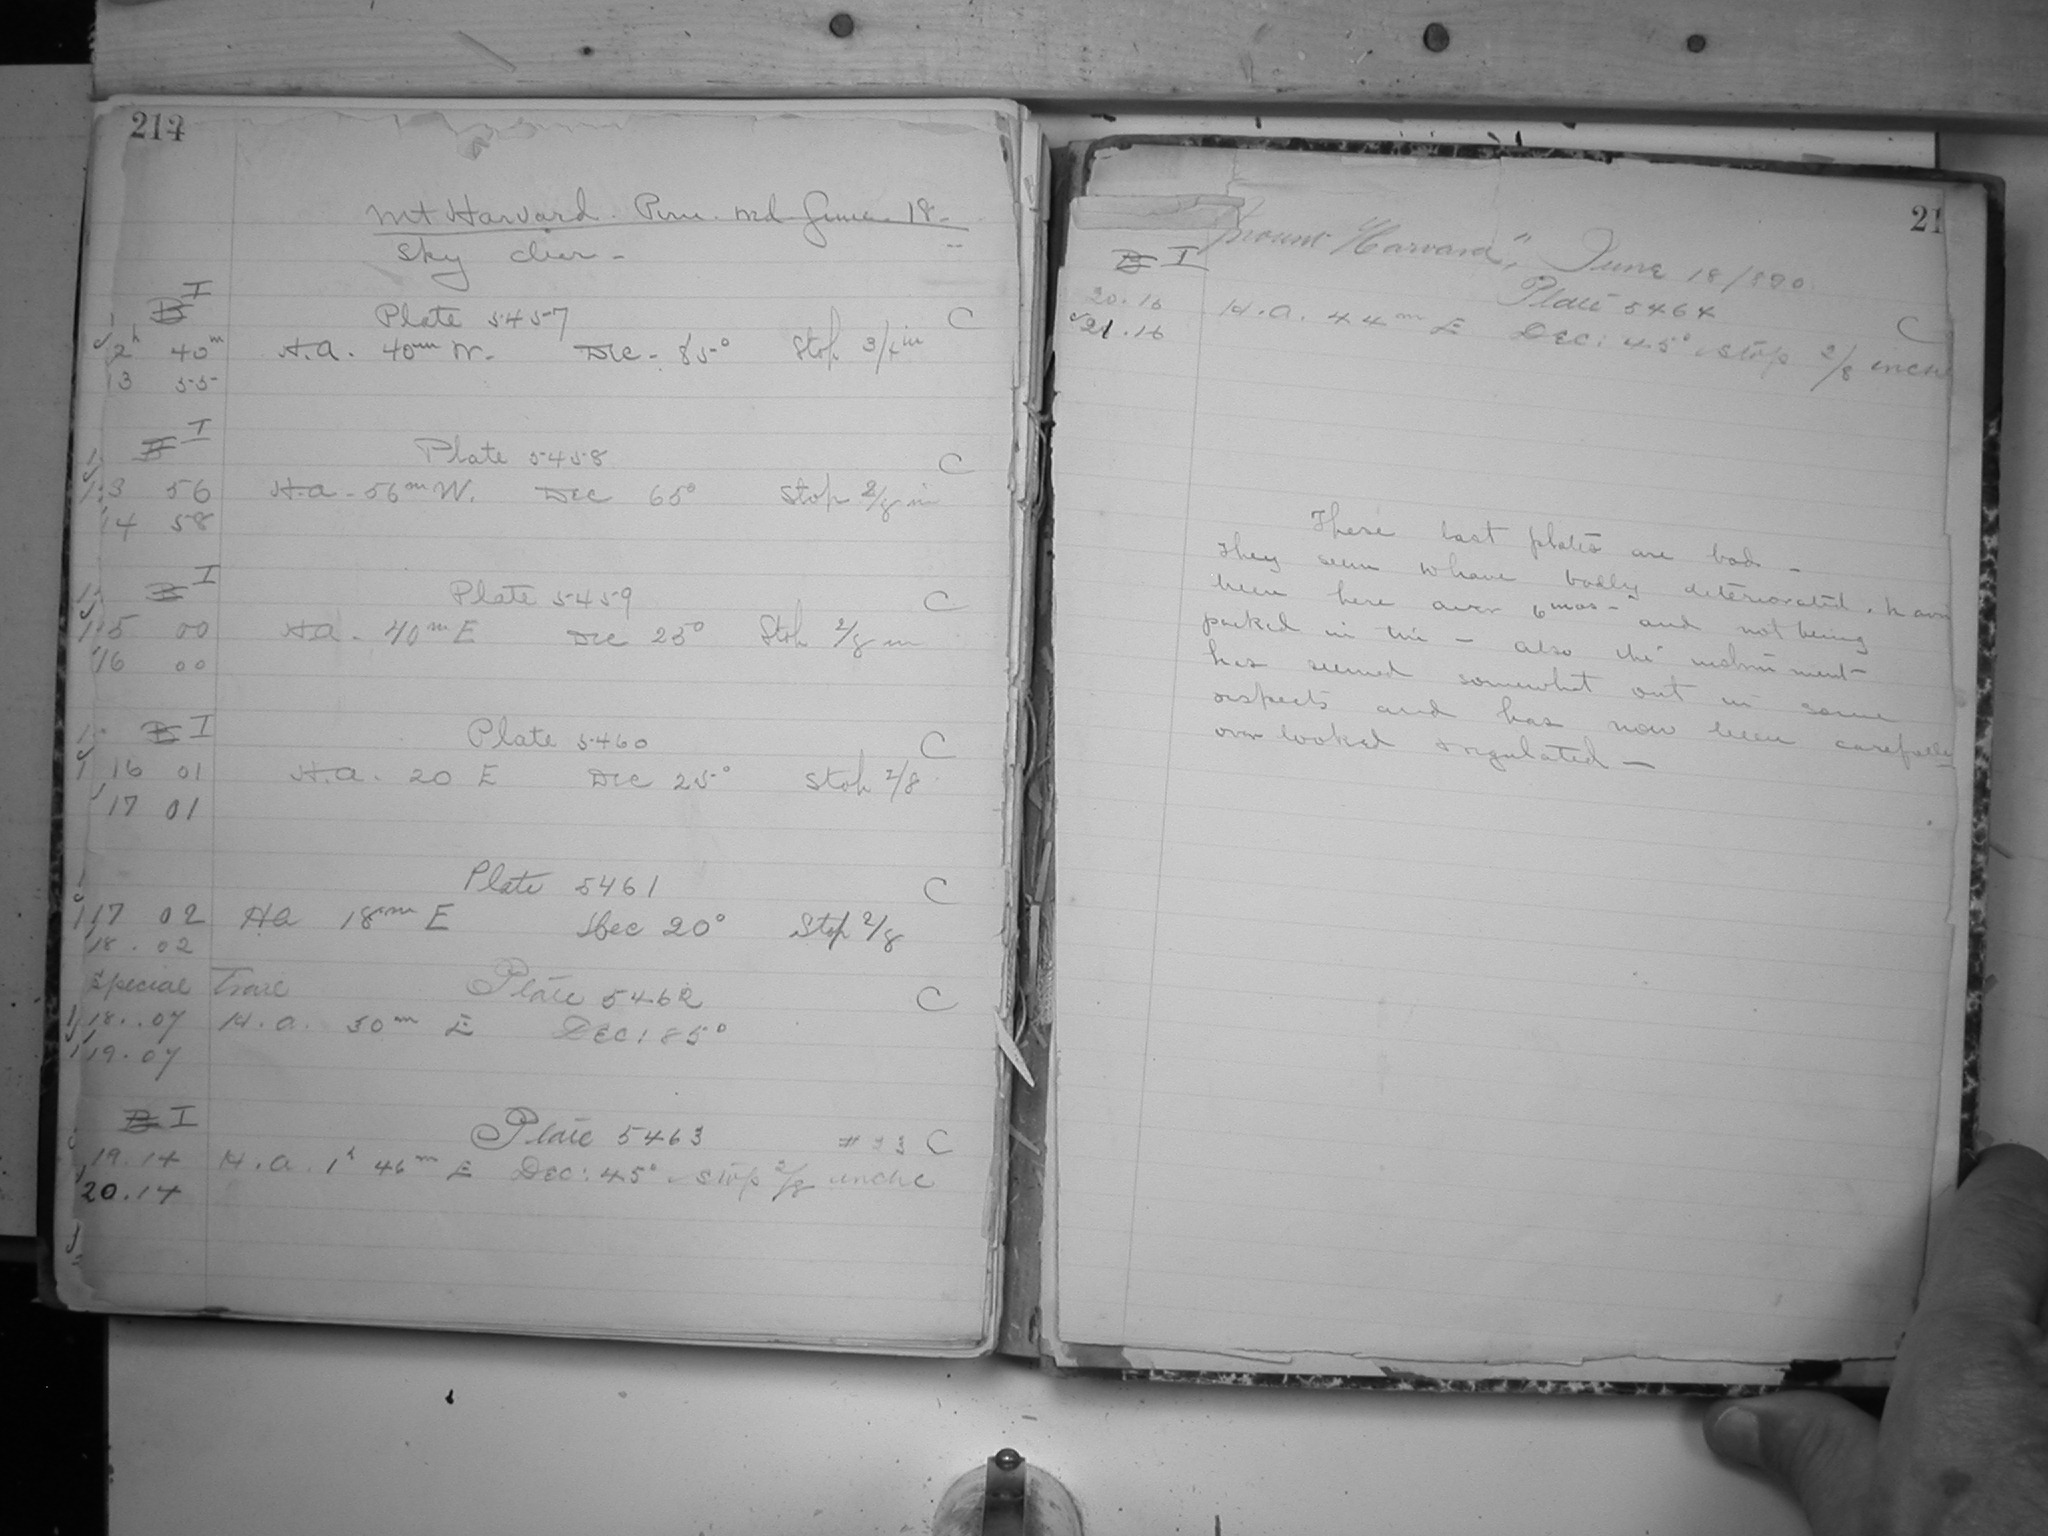 214
Mt Harvard. Peru. Wd June 18-
Sky clear -
B I
Plate 5457 C
12h 40m H.A. 40m W. Dec - 85° Stop 3/4 in
13 55
B I
Plate 5458 C
13 56 H.A - 56m W. Dec 65° Stop 2/8 in
14 58
B I
Plate 5459 C
15 00 HA - 40m E Dec 25° Stop 2/8 in
16 00
B I
Plate 5460 C
16 01 H.A. 20 E Dec 25° Stop 2/8
17 01
Plate 5461 C
17 02 HA 18m E Dec 20° Stop 2/8
18. 02
Special Trace Plate 5462 C
18. 07 H.A. 30m E Dec: 85°
19. 07
B I
Plate 5463 # 23 C
19. 14 H.A. 1h 46m E Dec: 45° Stop 2/8 inche
20. 14
21
"Mount Harvard", June 18/890
B I
Plate 5464 C
20. 16 H.A. 44m E Dec: 45° Stop 2/8 inche
21. 16
These last plates are bad -
They seem to have badly deteriorated. havin
been here over 6 mos - and not being
packed in tin - also the instrument
has seemed somewhat out in some
respects and has now been carefully
over looked & regulated -